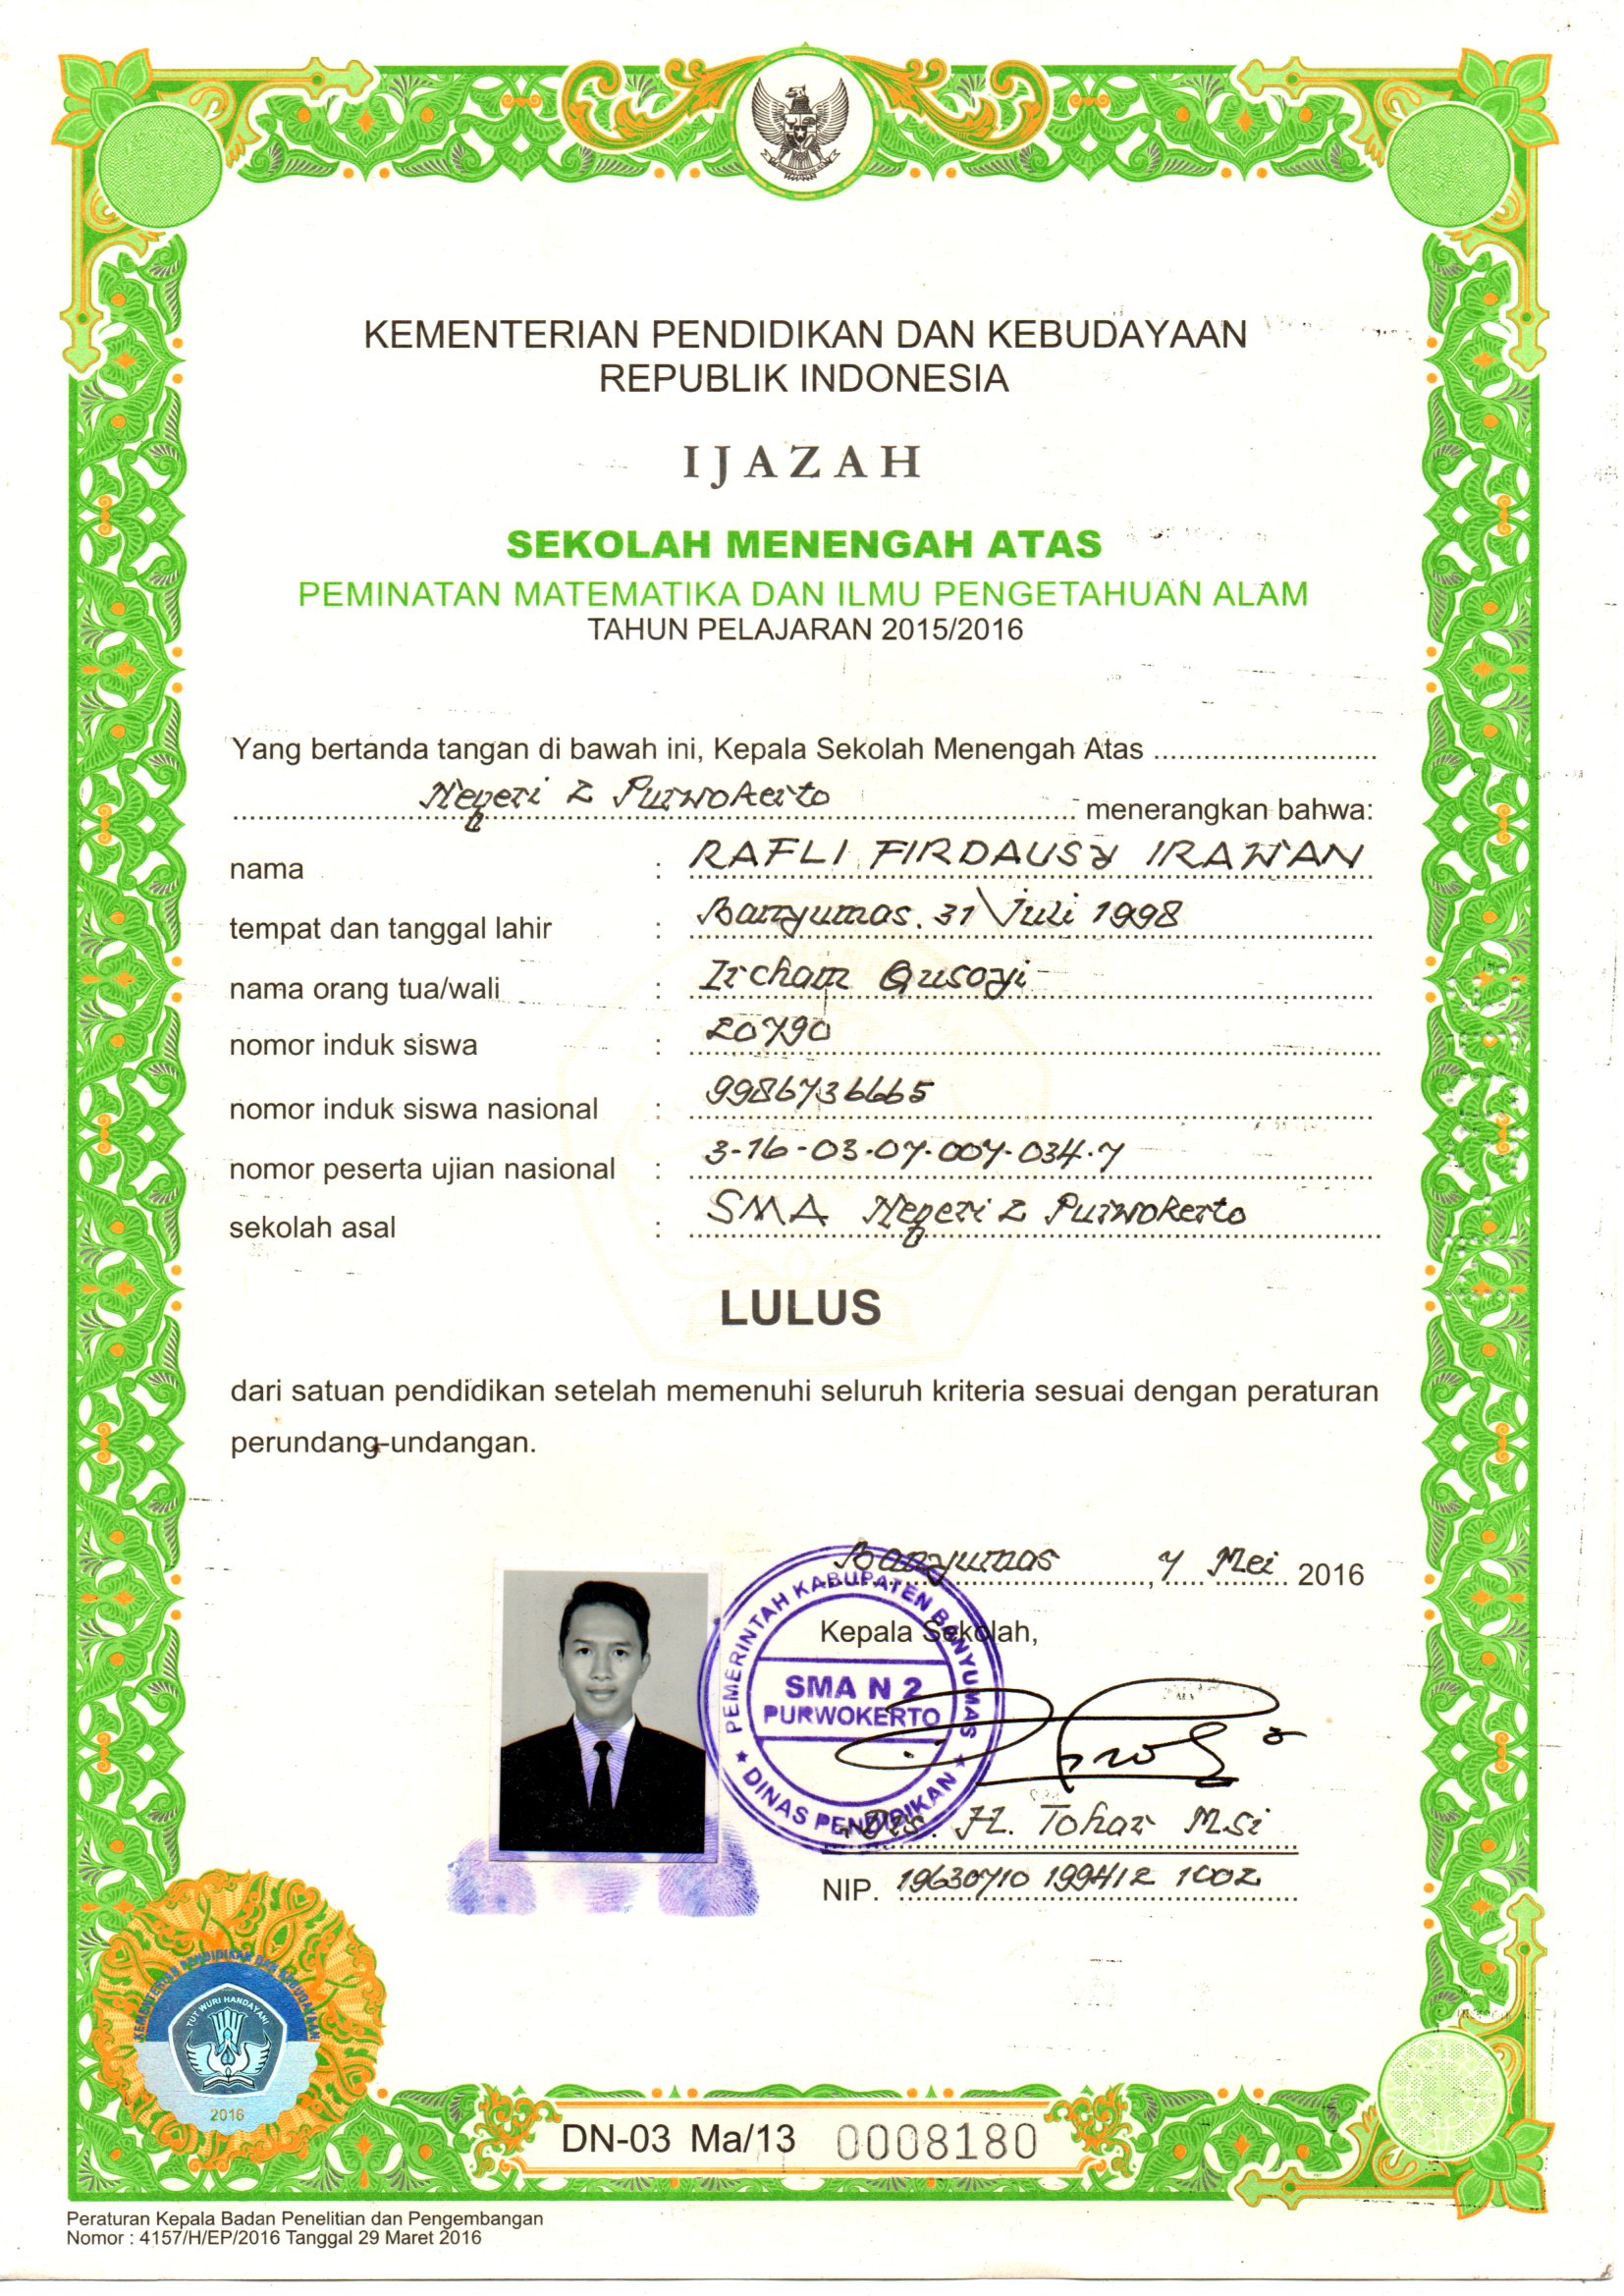 KEMENTERIAN PENDIDIKAN DAN KEBUDAYAAN
REPUBLIK INDONESIA
IJAZAH
SEKOLAH MENENGAH ATAS
PEMINATAN MATEMATIKA DAN ILMU PENGETAHUAN ALAM
TAHUN PELAJARAN 2015/2016
Yang bertanda tangan di bawah ini, Kepala Sekolah Menengah Atas ...........................
Negeri 2 Purwokerto menerangkan bahwa:
nama : RAFLI FIRDAUSY IRAWAN
tempat dan tanggal lahir : Banyumas, 31 Juli 1998
nama orang tua/wali : Ircham Qusoyi
nomor induk siswa : 20790
nomor induk siswa nasional : 9986736665
nomor peserta ujian nasional : 3-16-03-07-007-034-7
sekolah asal : SMA Negeri 2 Purwokerto
LULUS
dari satuan pendidikan setelah memenuhi seluruh kriteria sesuai dengan peraturan
perundang-undangan.
Banyumas, 7 Mei 2016
Kepala Sekolah,
PEMERINTAH KABUPATEN BANYUMAS
SMA N 2
PURWOKERTO
DINAS PENDIDIKAN
Drs. H. Tohar M.Si
NIP. 19630710 199412 1002
KEMENTERIAN PENDIDIKAN DAN KEBUDAYAAN
TUT WURI HANDAYANI
2016
DN-03 Ma/13 0008180
Peraturan Kepala Badan Penelitian dan Pengembangan
Nomor : 4157/H/EP/2016 Tanggal 29 Maret 2016